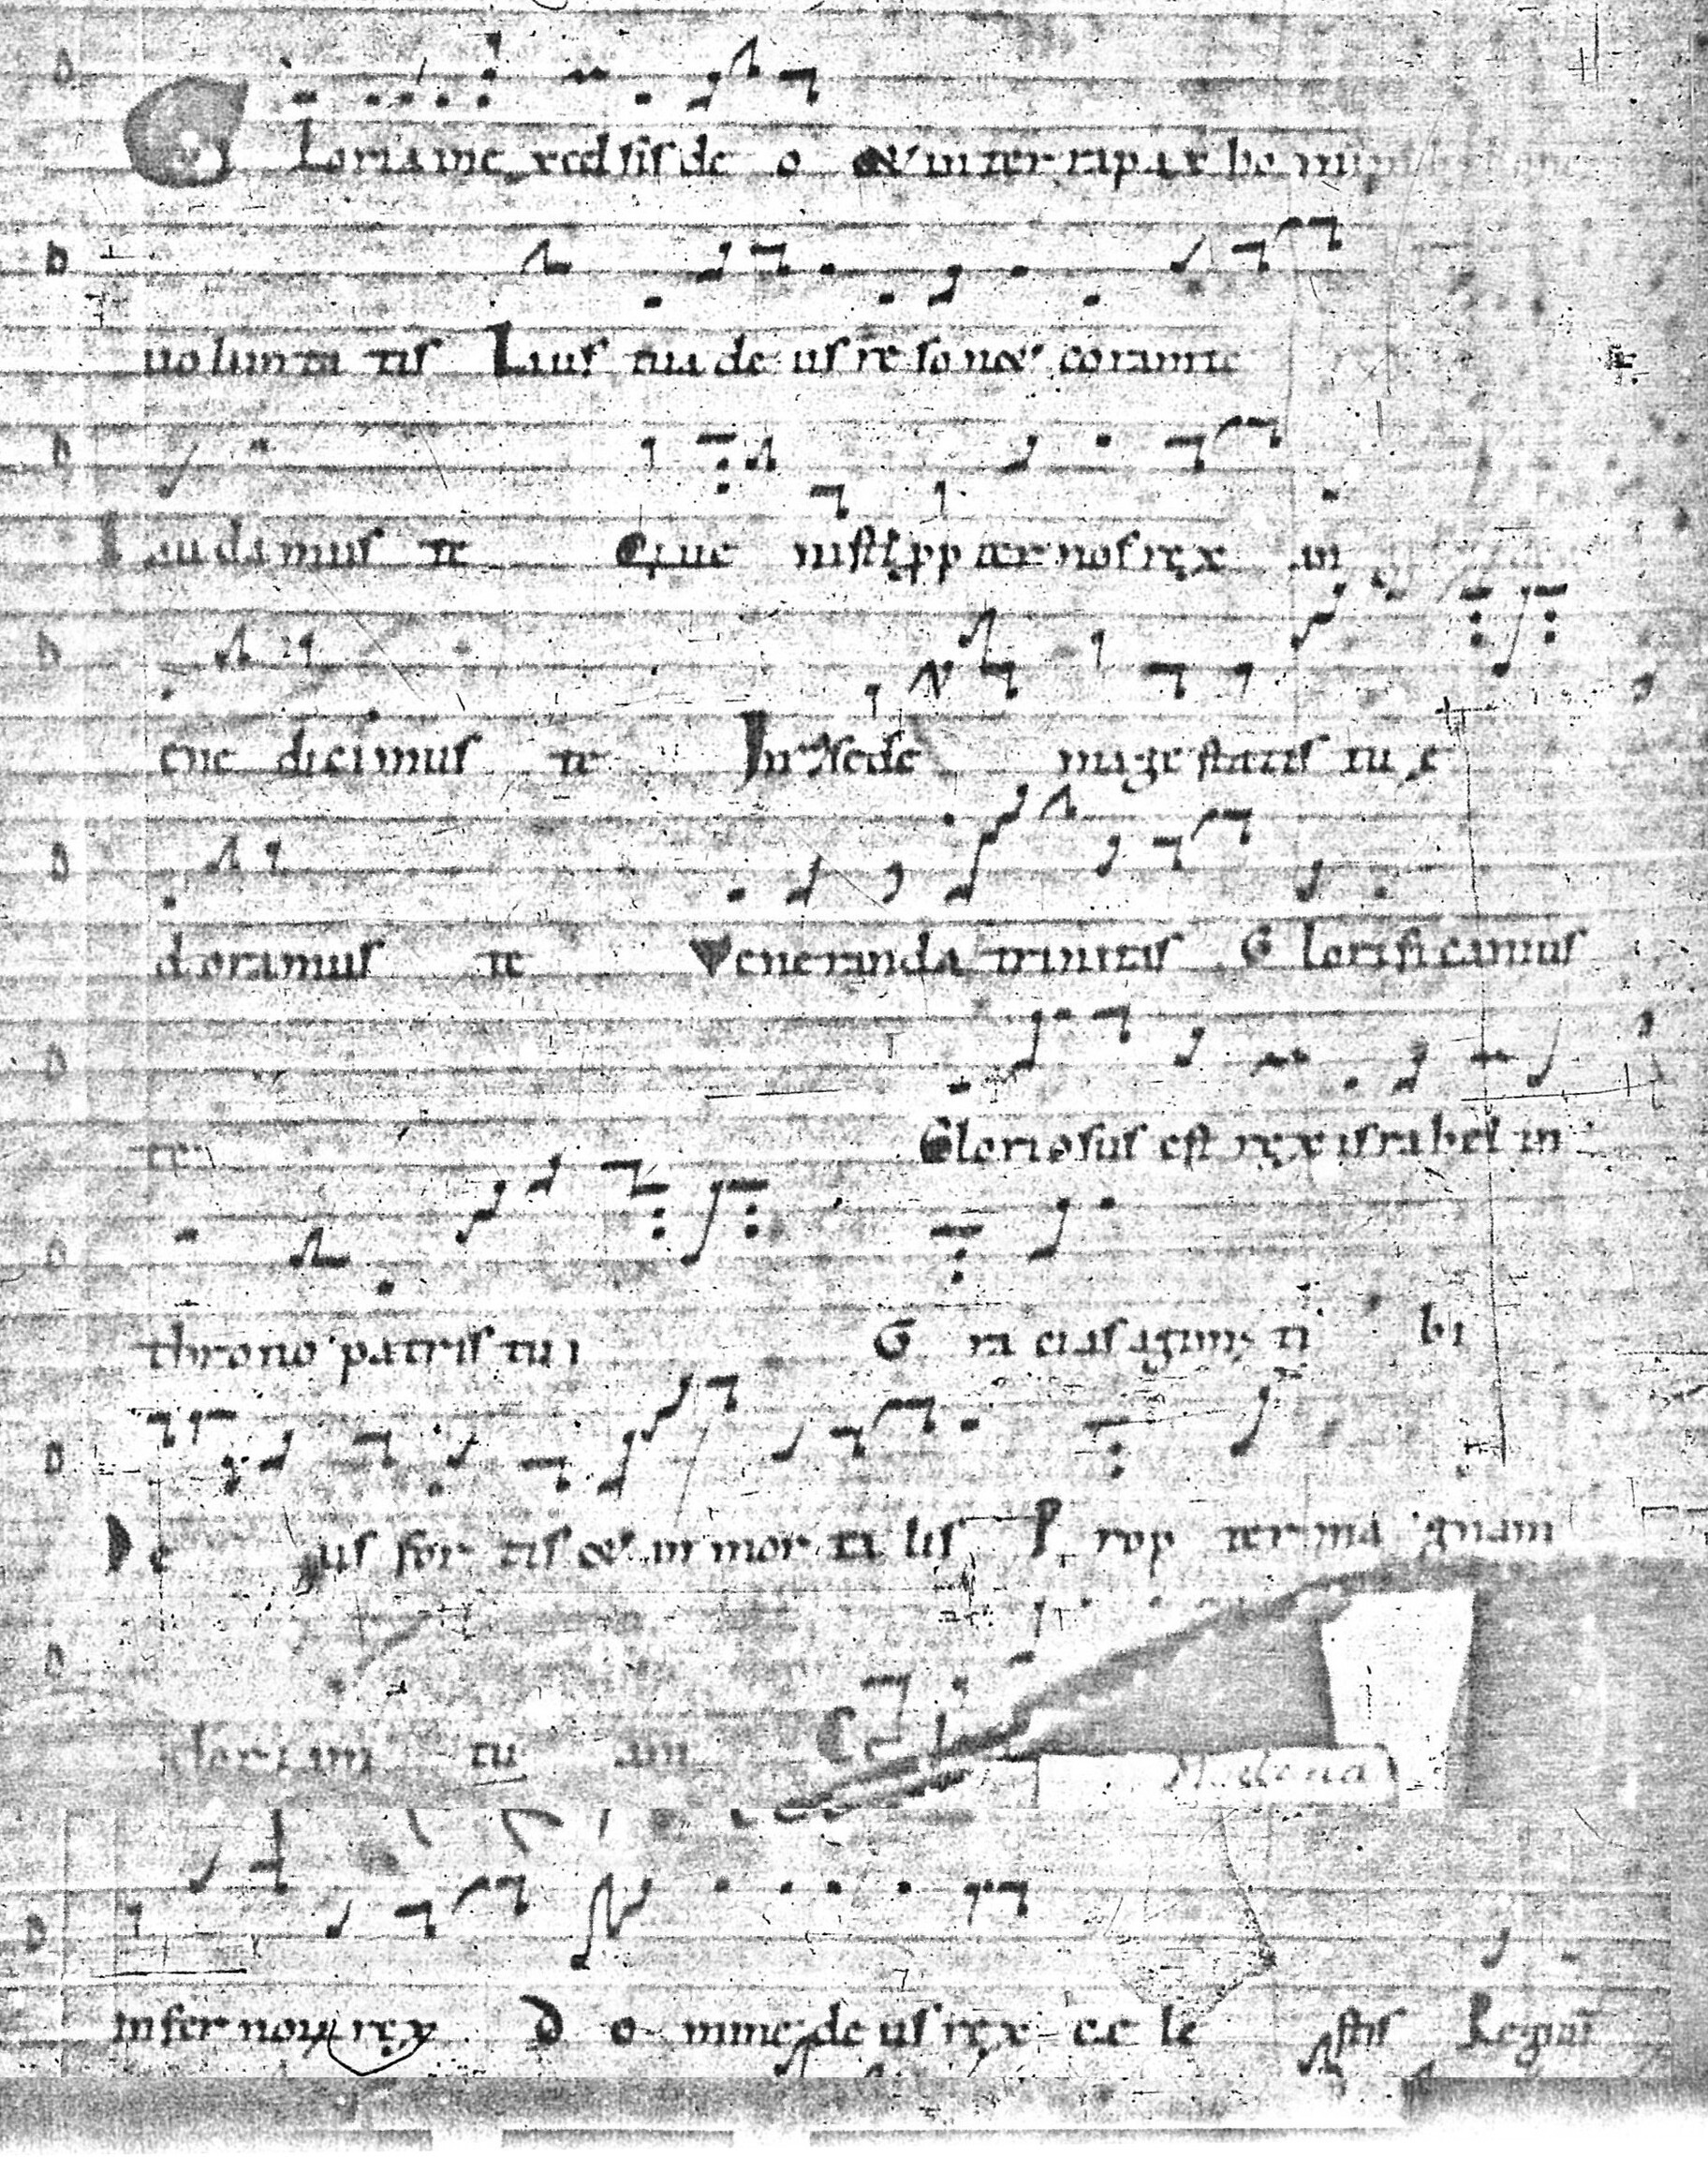 Loria ine xcelsis de o & in ter ra pax ho mini
uo lun ta tis Laus tua de us re so n& coram te
au da mus te Qui ue nisti pp ter nos rex in
ene dicimus te In sede mage statis tu e
doramus te Veneranda trinitas G lorificamus
te Gloriosus est rex israhel in
throno patris tui G ra cias agim ti bi
De us for tis & in mor ta lis P rop ter ma gnam
gloriam tu am
Modena
infer nor rex D o mine de us rex ce le stis Regnat